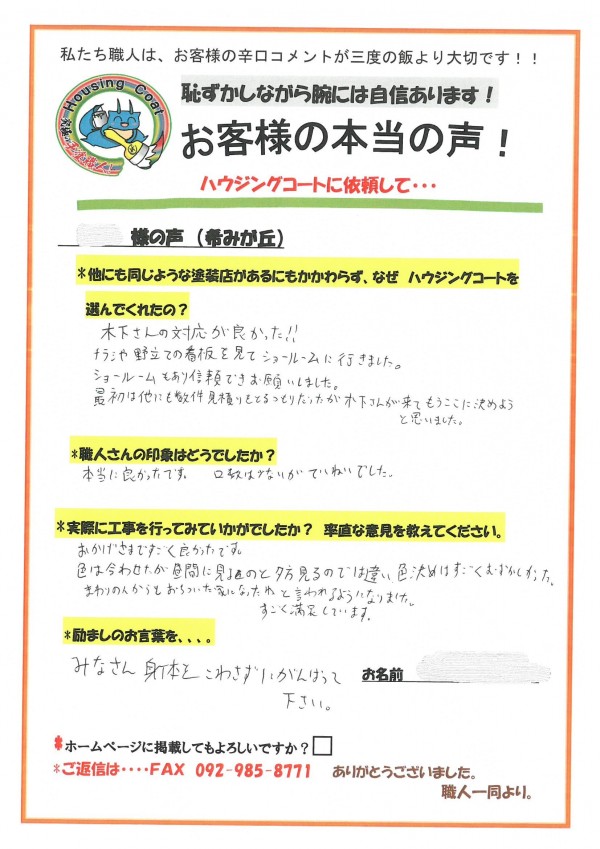 私たち職人は、お客様の辛口コメントが三度の飯より大切です！！
Housing Coat
恥ずかしながら腕には自信あります！
お客様の本当の声！
ハウジングコートに依頼して・・・
様の声（希みが丘）
*他にも同じような塗装店があるにもかかわらず、なぜ ハウジングコートを
選んでくれたの？
木下さんの対応が良かった!!
チラシや野立ての看板を見てショールームに行きました。
ショールームもあり信頼できお願いしました。
最初は他にも数件見積りをとるつもりだったが木下さんが来てもうここに決めよう
と思いました。
*職人さんの印象はどうでしたか？
本当に良かったです。 口数は少ないがていねいでした。
*実際に工事を行ってみていかがでしたか？ 率直な意見を教えてください。
おかげさまですごく良かったです。
色は合わせたが昼間に見るのと夕方見るのでは違い色決めはすごくむずかしかった。
まわりの人からもおちついた家になったねと言われるようになりました。
すごく満足しています。
*励ましのお言葉を、、、。
みなさん 身体をこわさずにがんばって
下さい。
お名前
*ホームページに掲載してもよろしいですか？□
*ご返信は・・・・FAX 092-985-8771 ありがとうございました。
職人一同より。